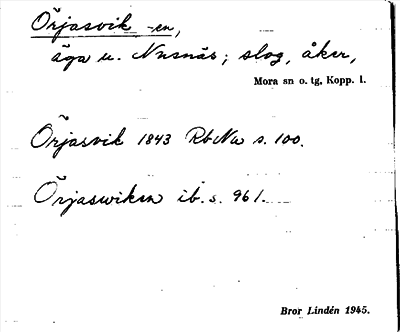 Örjasvik -en,
äga u. Nusnäs; slog, åker,
Mora sn o. tg, Kopp. l.
Örjasvik 1843 RbNu s. 100.
Örjaswiken ib. s. 961.
Bror Lindén 1945.